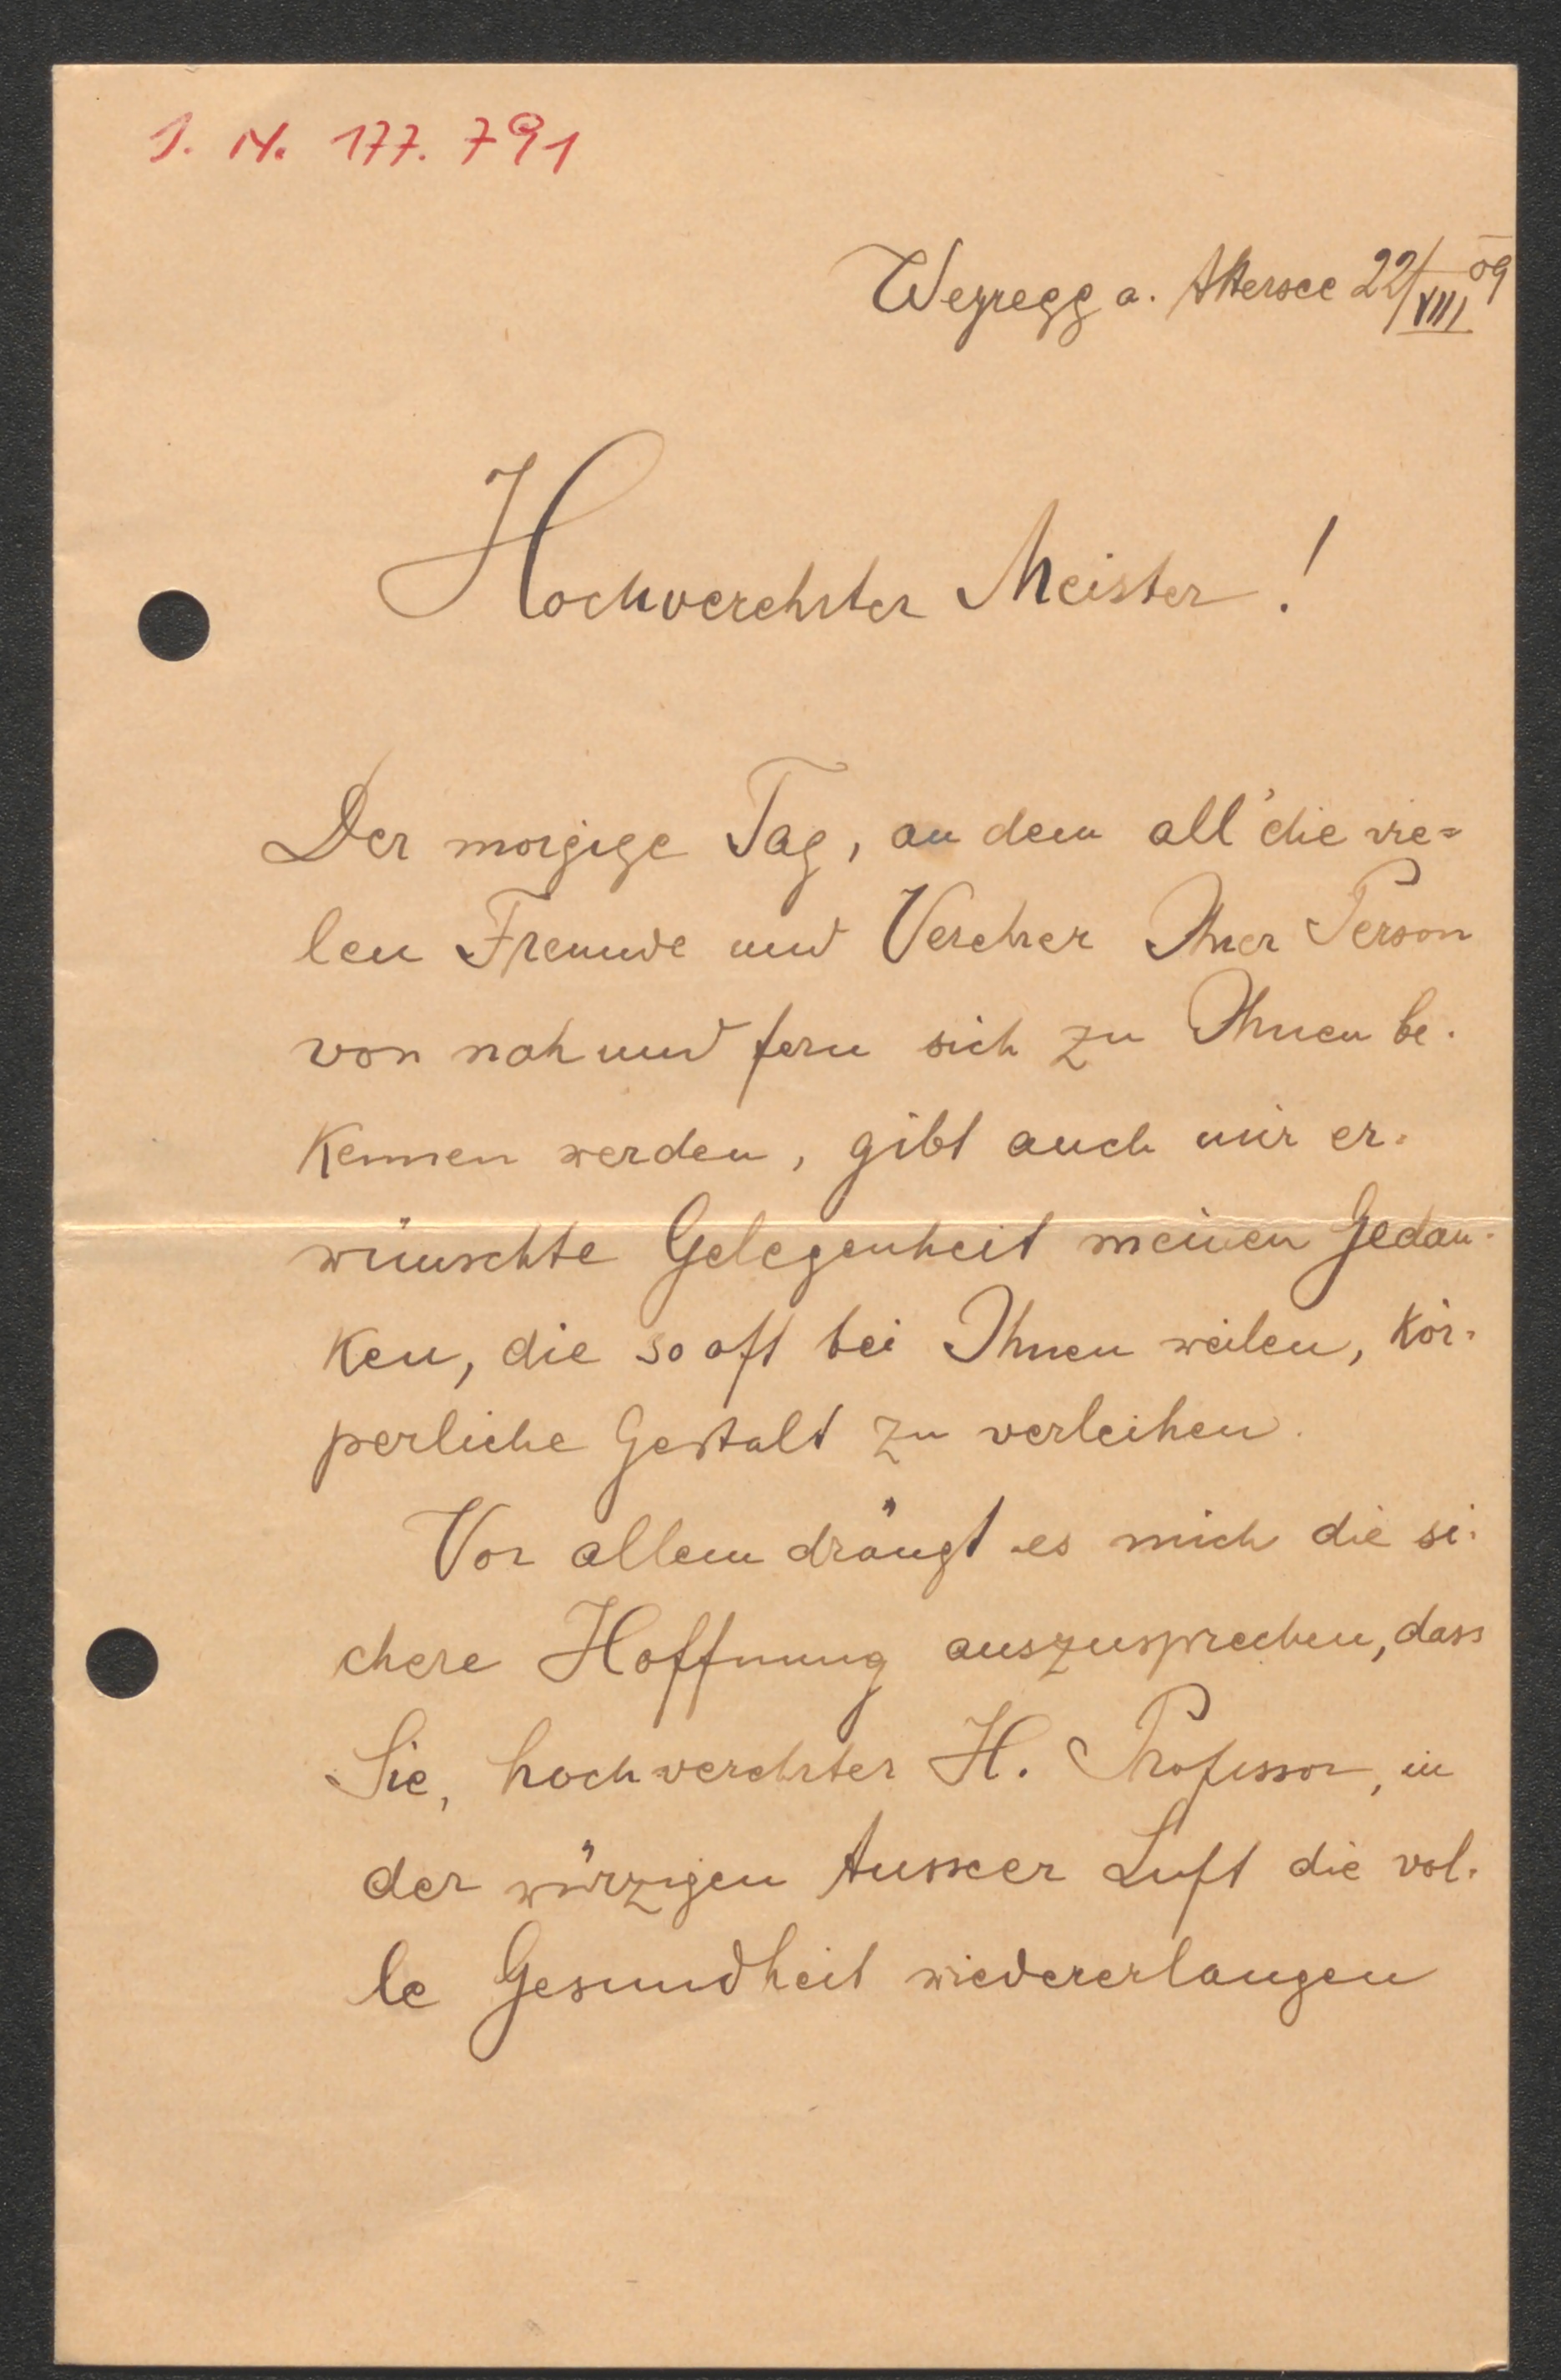 I. N. 177.791
Weyregg a. Attersee 22/VIII 09
Hochverehrter Meister!
Der morgige Tag, an dem all' die vie=
len Freunde und Verehrer Ihrer Person
von nah und fern sich zu Ihnen be-
kennen werden, gibt auch mir er-
wünschte Gelegenheit meinen Gedan-
ken, die so oft bei Ihnen weilen, kör-
perliche Gestalt zu verleihen.
Vor allem drängt es mich die si-
chere Hoffnung auszusprechen, dass
Sie, hochverehrter H. Professor, in
der würzigen Ausseer Luft die vol-
le Gesundheit wiedererlangen